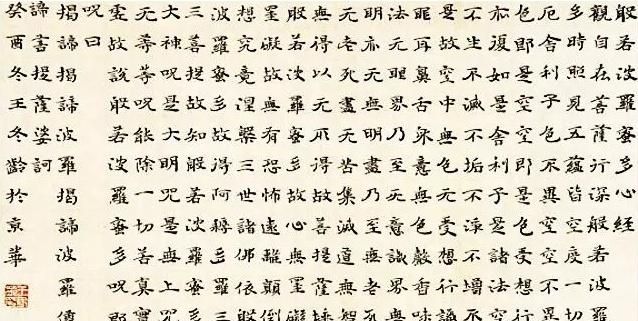 般若波羅蜜多心經
觀自在菩薩行深般若波羅
多時照見五蘊皆空度一切
厄舍利子色不異空空不異
色即是空空即是色受想行
亦復如是舍利子是諸法空
不生不滅不垢不淨不增不
是故空中无色无受想行識
眼耳鼻舌身意无色聲香味
法无眼界乃至无意識界无
明亦无无明盡乃至无老死
无老死盡无苦集滅道無智
無得以无所得故菩提薩埵
般若波羅蜜多故心無罣礙
罣礙故無有恐怖遠離顛倒
想究竟涅槃三世諸佛依般
波羅蜜多故得阿耨多羅三
三菩提故知般若波羅蜜多
大神咒是大明咒是無上咒
无等等咒能除一切苦真實
虛故說般若波羅蜜多咒即
咒曰
揭諦揭諦波羅揭諦波羅僧
諦菩提薩婆訶
癸酉冬王冬齡於京華